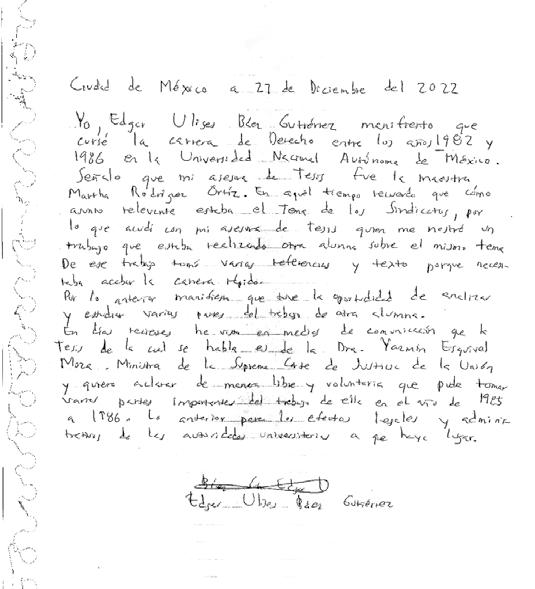 Ciudad de México a 27 de Diciembre del 2022
Yo, Edgar Ulises Báez Gutiérrez manifiesto que
cursé la carrera de Derecho entre los años 1982 y
1986 en la Universidad Nacional Autónoma de México.
Señalo que mi asesora de Tesis fue la maestra
Martha Rodríguez Ortiz. En aquel tiempo recuerdo que cómo
asunto relevante estaba el Tema de los Sindicatos, por
lo que acudí con mi asesora de Tesis quien me mostró un
trabajo que estaba realizado otra alumna sobre el mismo tema
De ese trabajo tomé varias referencias y texto porque neces-
itaba acabar la carrera rápido.
Por lo anterior manifiesto que tuve la oportunidad de analizar
y estudiar varias partes del trabajo de otra alumna.
En días recientes he visto en medios de comunicación que la
Tesis de la cual se habla es de la Dra. Yazmín Esquivel
Moza. Ministra de la Suprema Corte de Justicia de la Unión
y quiero aclarar de manera libre y voluntaria que pude tomar
varias partes importantes del trabajo de ella en el año de 1985
a 1986. Lo anterior para los efectos legales y adminis
trativos de las autoridades universitarias a que haya lugar.
Edgar Ulises Báez Gutiérrez